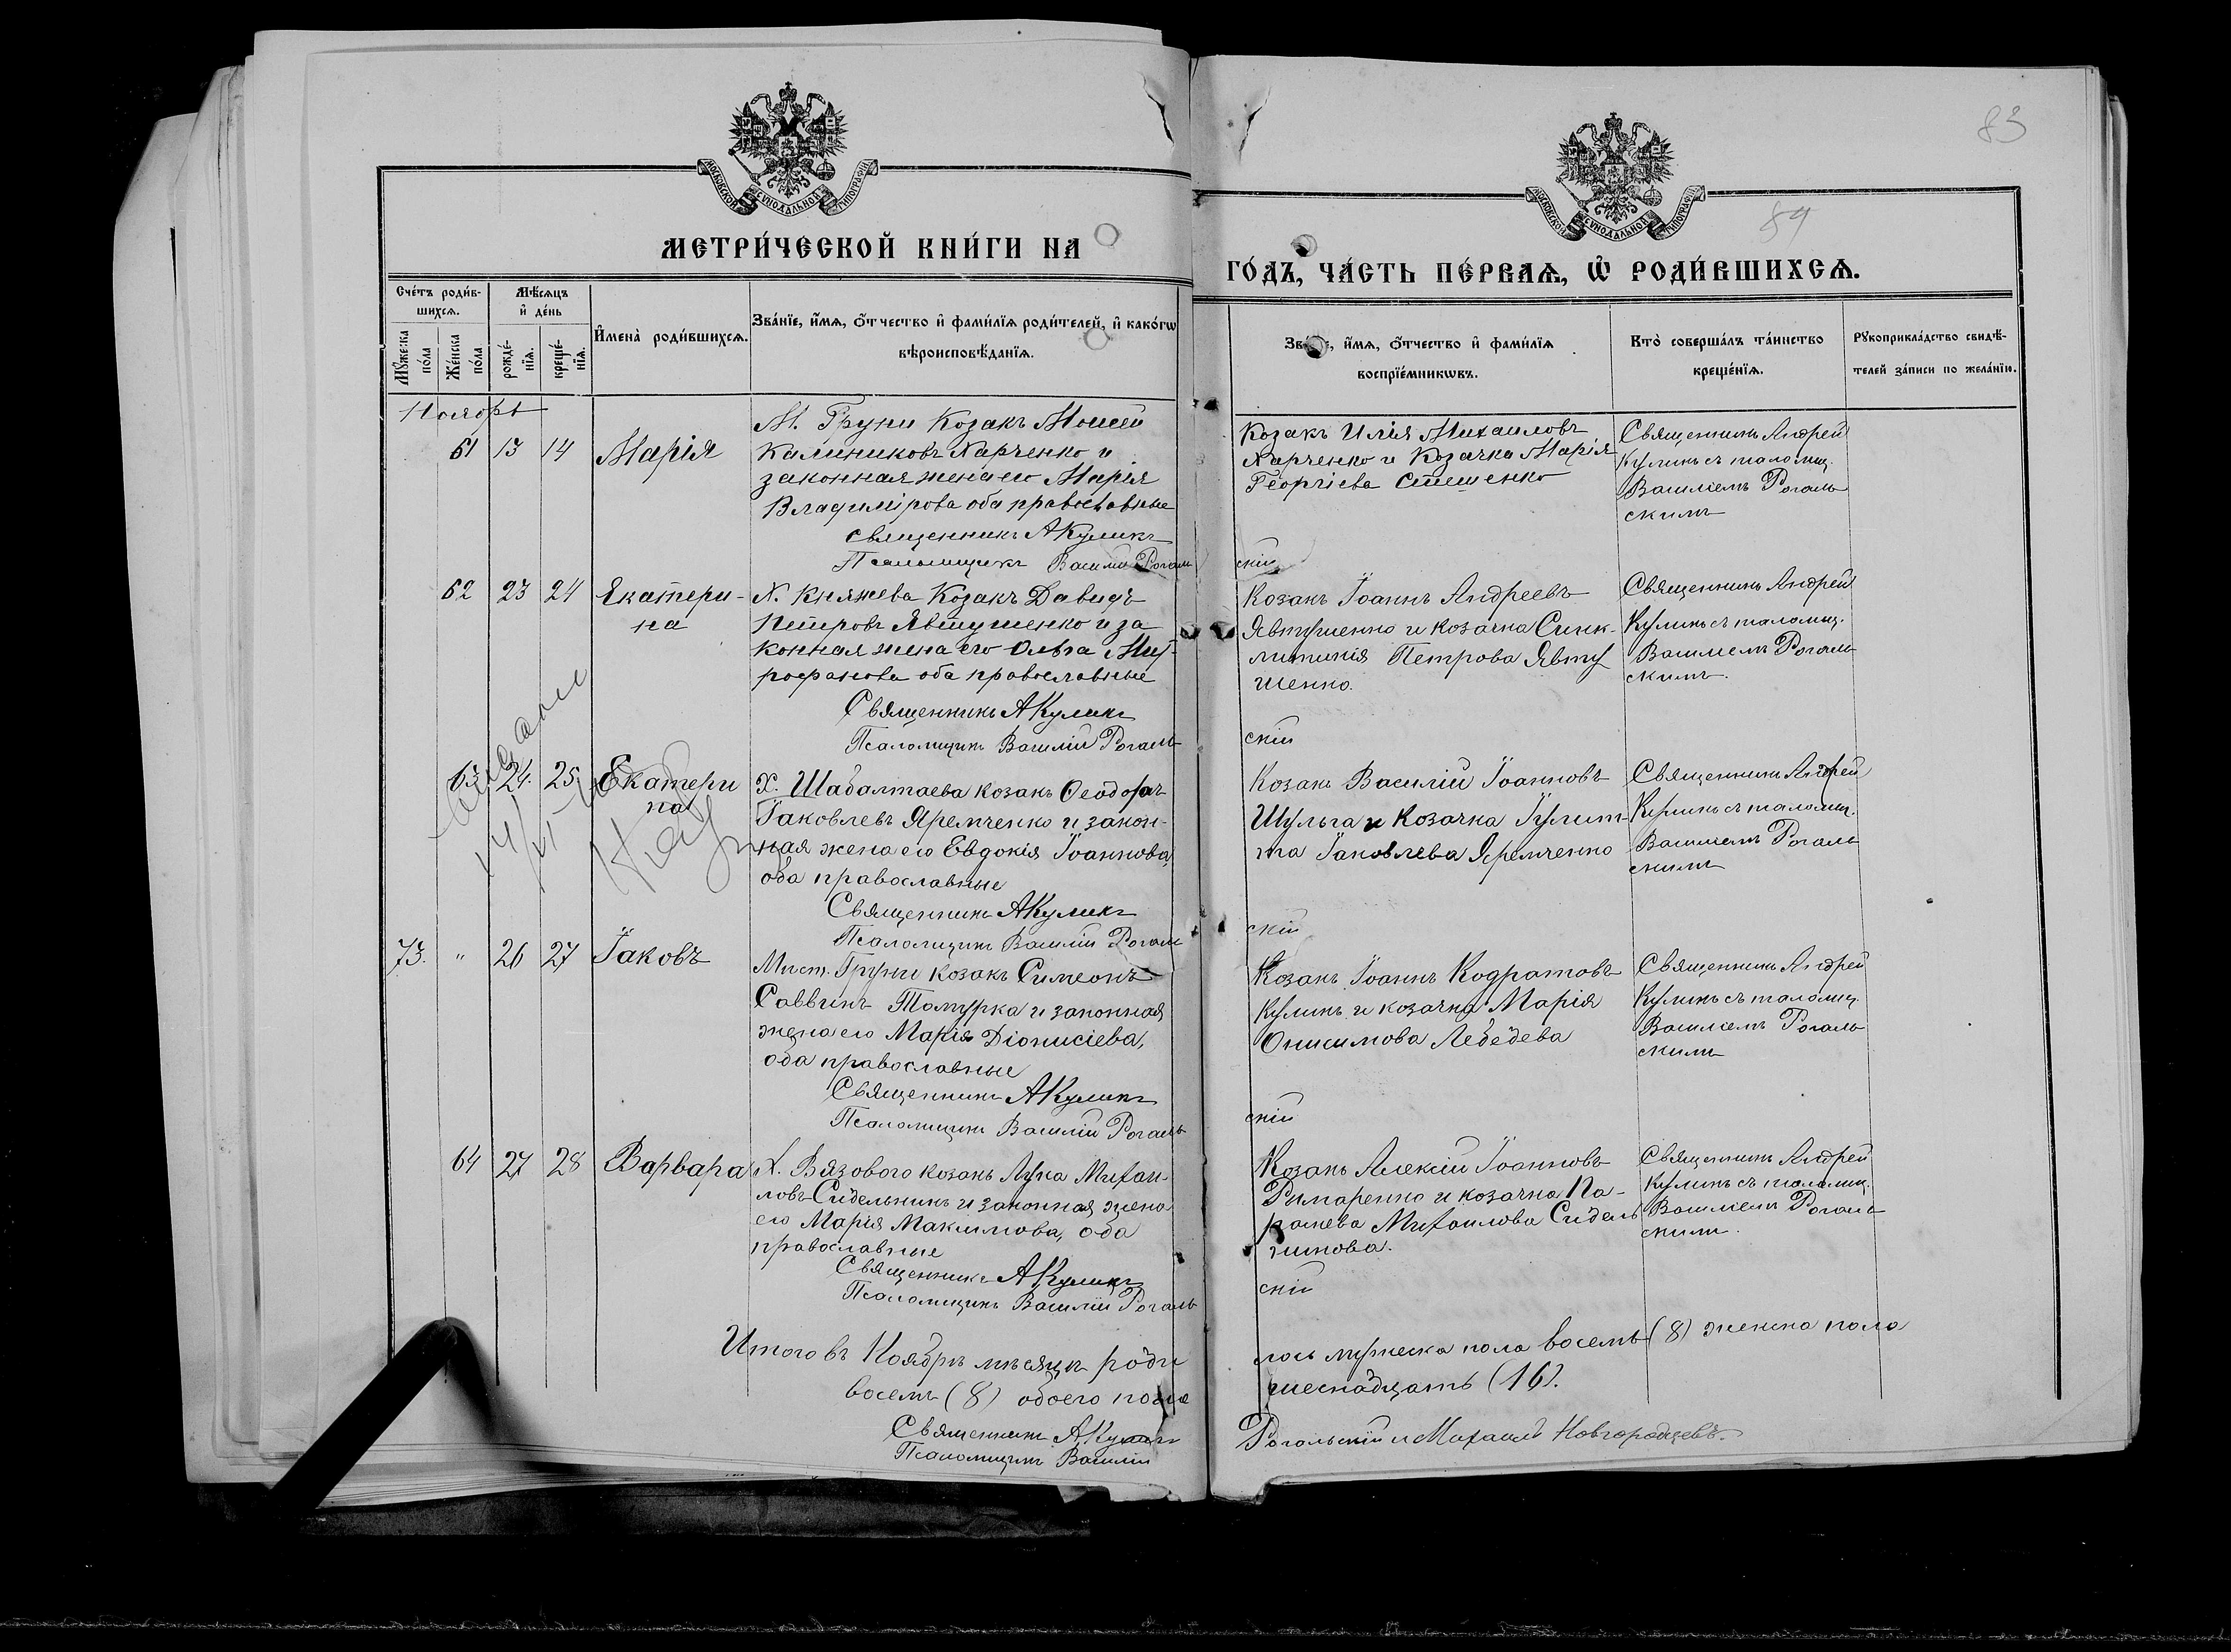 83
МОСКОВСКОЙ СУНОДАЛЬНОЙ ТИПОГРАФІИ
МОСКОВСКОЙ СУНОДАЛЬНОЙ ТИПОГРАФІИ
84
МЕТРИ́ЧЕСКОЙ КНИ́ГИ НА
ГО́ДЪ, ЧА́СТЬ ПЕ́РВАѦ, Ѡ҆ РОДИ́ВШИХСѦ.
Сче́тъ роди́в-
шихсѧ.
Мѣ́сѧцъ
и҆ де́нь
Мꙋ́жеска по́ла
Же́нска по́ла
рожде́-
нїѧ.
креще́-
нїѧ.
И҆мена̀ роди́вшихсѧ.
Зва́нїе, и҆́мѧ, ѻ҆́тчество и҆ фами́лїѧ роди́телей, и҆ како́гѡ
вѣроисповѣ́данїѧ.
Зва́нїе, и҆́мѧ, ѻ҆́тчество и҆ фами́лїѧ
воспрїе́мникѡвъ.
Кто̀ соверша́лъ та́инство
креще́нїѧ.
Рꙋкоприкла́дство свидѣ́-
телей за́писи по жела́нїю.
Ноябрь
61 13 14 Марія
М. Груни Козакъ Моисей
Калиниковъ Харченко и
законная жена его Марія
Владимірова оба православные
священникъ А Куликъ
Псаломщикъ Василій Рогаль
Козакъ Илія Михаиловъ
Харченко и Козачка Марія
Георгіева Стешенко
скій
Священникъ Андрей
Куликъ съ псаломщ.
Василіемъ Рогаль
скимъ
62 23 24 Екатери-
на
Х. Княжева Козакъ Давидъ
Петровъ Явтушенко и за
конная жена его Ольга Мит-
рофанова оба православные
Священникъ А Куликъ
Псаломщикъ Василій Рогаль
Козакъ Іоаннъ Андреевъ
Явтушенко и козачка Синк-
литикія Петрова Явту
шенко.
скій
Священникъ Андрей
Куликъ съ псаломщ.
Василіемъ Рогаль
скимъ.
63 24. 25. Екатери
на
Х. Шабалтаева козакъ Ѳеодоръ
Іаковлевъ Яремченко и закон-
ная жена его Евдокія Іоаннова,
оба православные
Священникъ А Куликъ
Псаломщикъ Василій Рогаль
Козакъ Василій Іоанновъ
Шульга и Козачка Іулит-
та Іаковлева Яремченко
скій
Священникъ Андрей
Куликъ съ псаломщ.
Василіемъ Рогаль
скимъ
73. " 26 27 Іаковъ
Мист. Груни козакъ Симеонъ
Саввинъ Томурка и законная
жена его Марія Діонисіева,
оба православные
Священникъ А Куликъ
Псаломщикъ Василій Рогаль
Козакъ Іоаннъ Кодратовъ
Куликъ и козачка Марія
Онисимова Лебедева
скій
Священникъ Андрей
Куликъ съ псаломщ.
Василіемъ Рогаль
скимъ
64 27 28 Варвара
Х. Вязового козакъ Лука Михаи-
ловъ Сидельникъ и законная жена
его Марія Максимова, оба
православные
Священникъ А Куликъ
Псаломщикъ Василій Рогаль
Козакъ Алексій Іоанновъ
Римаренко и козачка Па-
раскева Михаилова Сидель
никова.
скій
Священникъ Андрей
Куликъ съ псаломщ.
Василіемъ Рогаль
скимъ.
Итого въ Ноябрѣ мѣсяцѣ роди
лось мужеска пола восемь (8) женска пола
восемь (8) обоего пола
шеснадцать (16).
Священникъ А Куликъ
Псаломщикъ Василій
Рогальскій и Михаилъ Новгородцевъ.